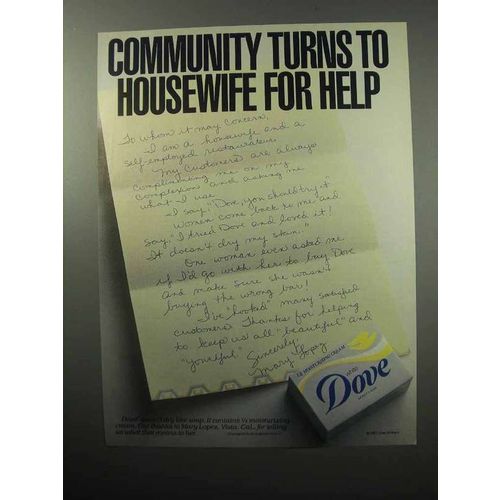 COMMUNITY TURNS TO
HOUSEWIFE FOR HELP
To whom it may concern,
I am a housewife and a
self-employed restaurateur.
My customers are always
complimenting me on my
complexion and asking me
what I use.
I say, "Dove, you should try it."
Women come back to me and
say, "I tried Dove and loved it!
It doesn't dry my skin."
One woman even asked me
if I'd go with her to buy Dove
and make sure she wasn't
buying the wrong bar!
I've "hooked" many satisfied
customers. Thanks for helping
to keep us all "beautiful" and
"youthful."
Sincerely,
Mary Lopez
1/4 MOISTURIZING CREAM
Dove
Dove doesn't dry like soap. It contains 1/4 moisturizing
cream. Our thanks to Mary Lopez, Vista, Cal., for telling
us what that means to her.